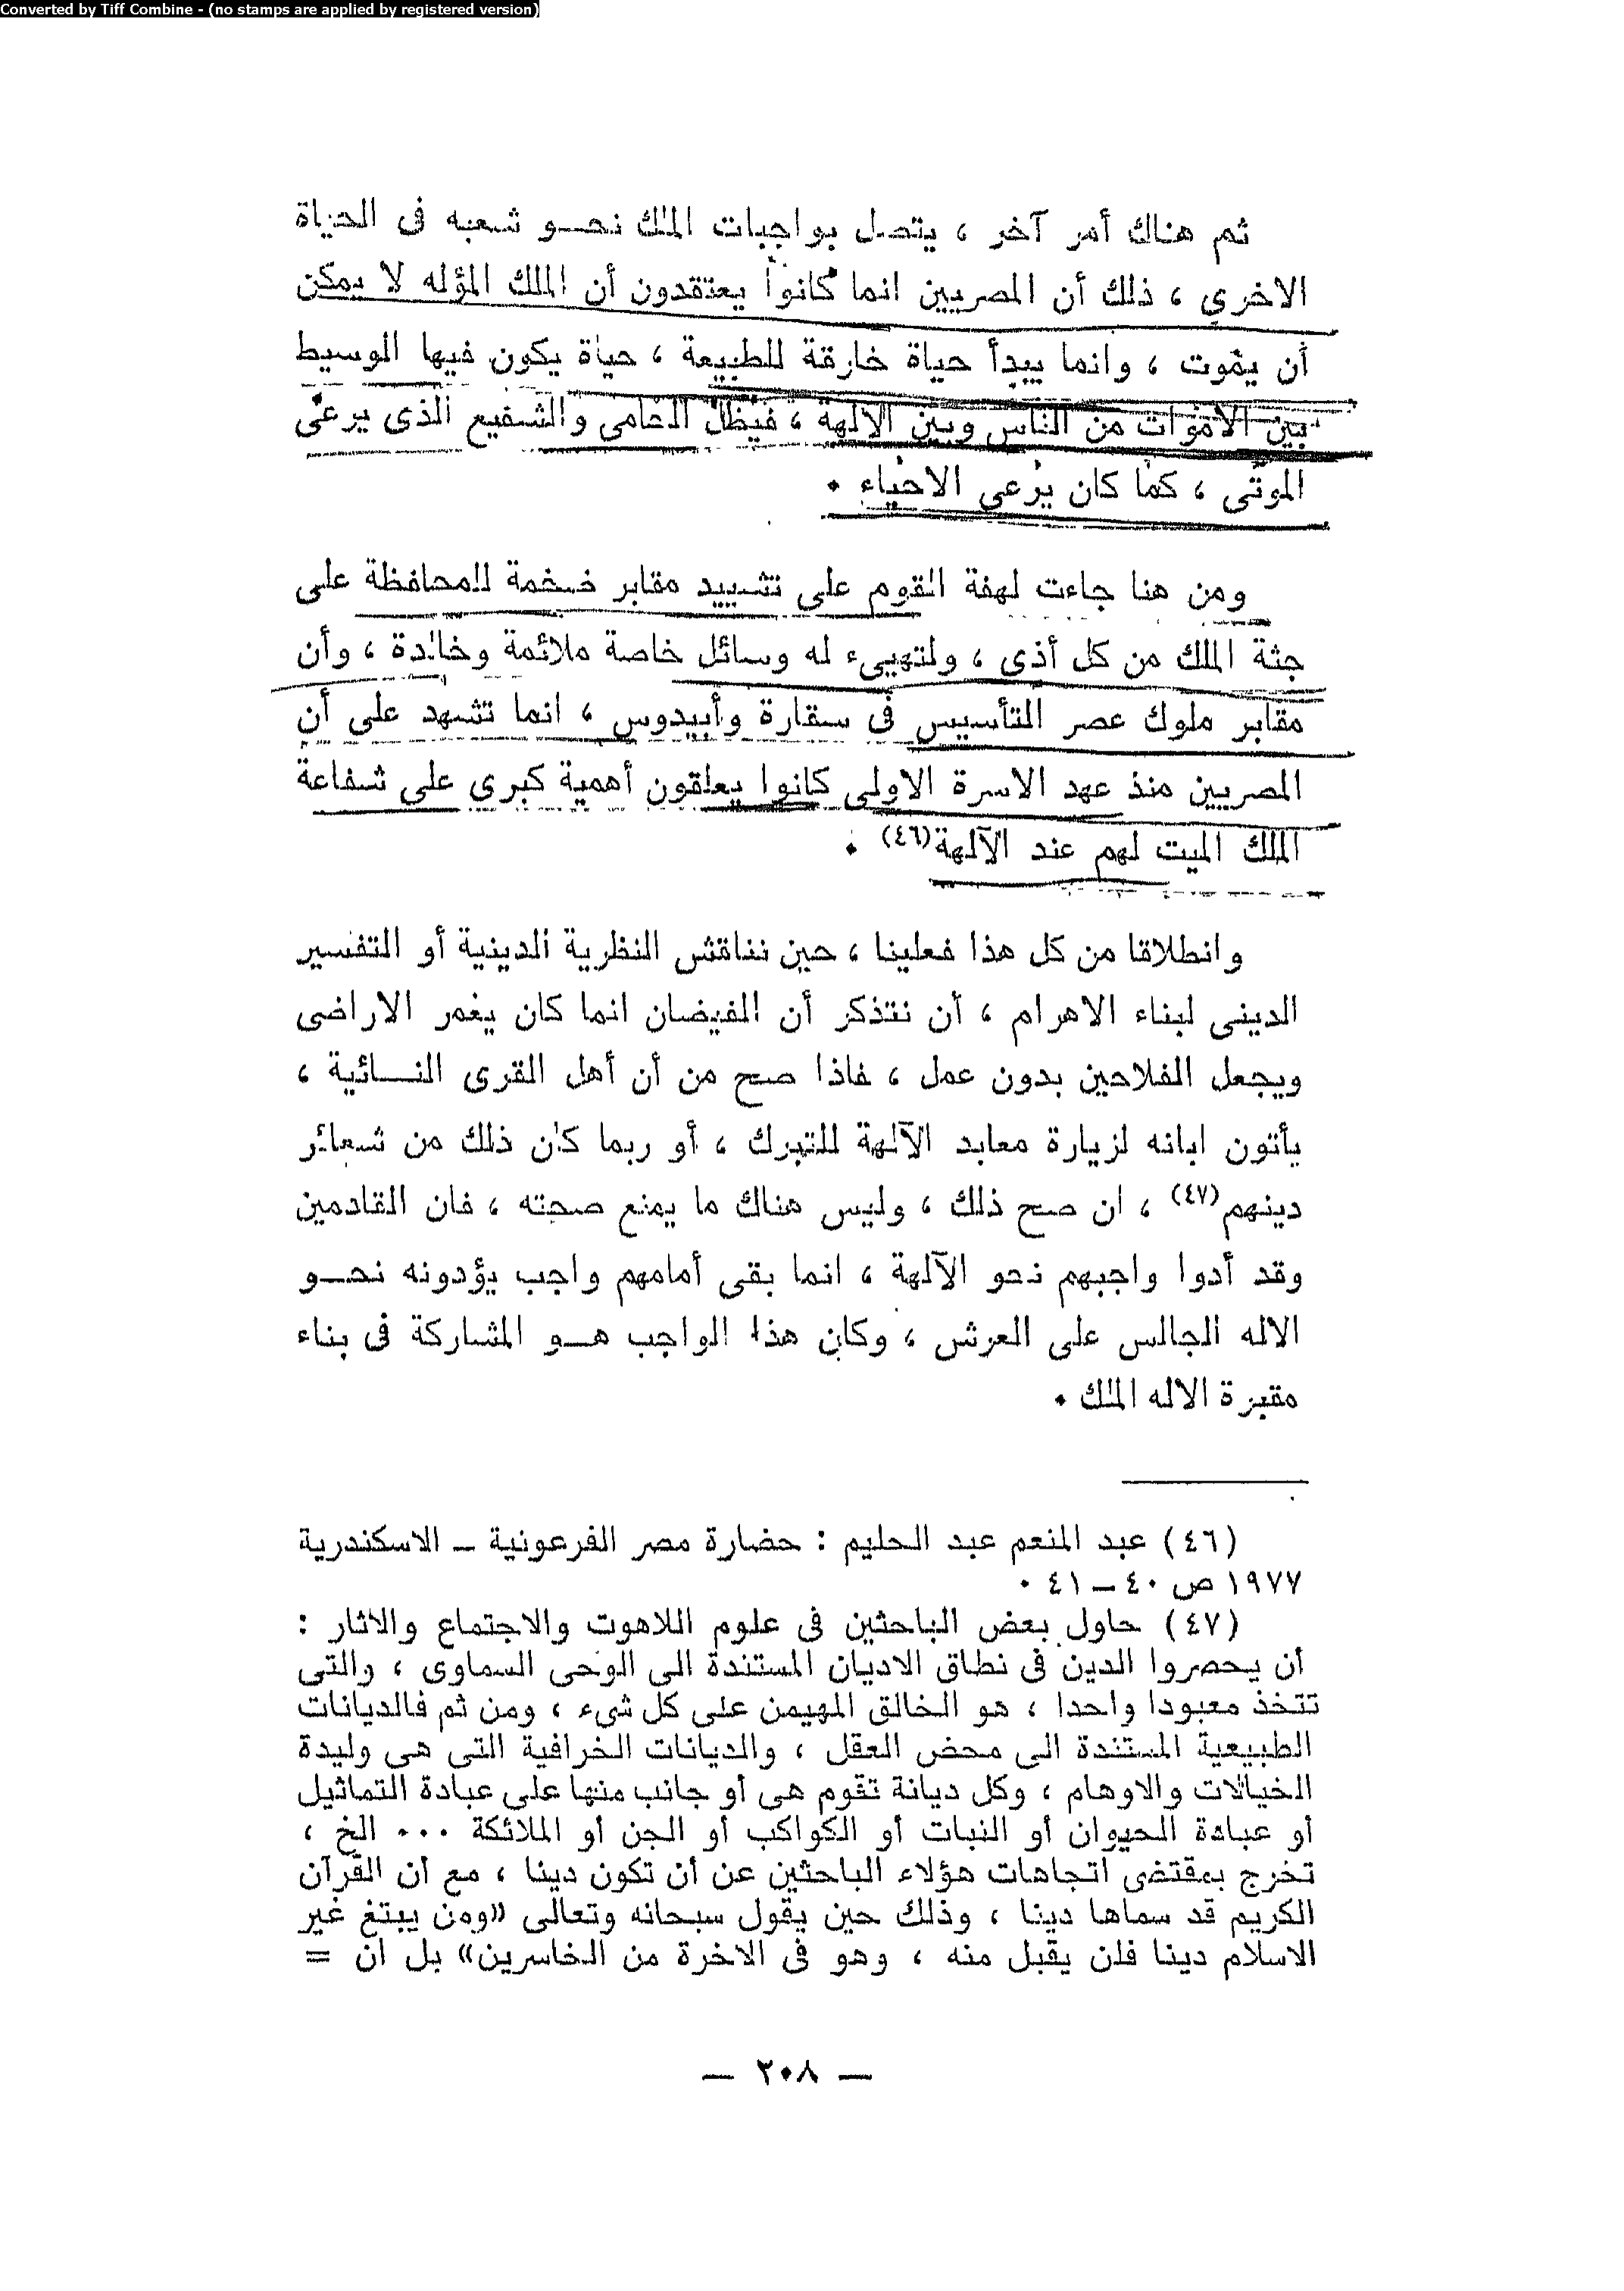 Converted by Tiff Combine - (no stamps are applied by registered version)
ثم هناك أمر آخر ، يتصل بواجبات الملك نحــو شعبه فى الحياة
الاخرى ، ذلك أن المصريين انما كانوا يعتقدون أن الملك المؤله لا يمكن
أن يموت ، وانما يبدأ حياة خارقة للطبيعة ، حياة يكون فيها الوسيط
بين الاموات من الناس وبين الالهة ، فيظل الحامى والشفيع الذى يرعى
الموتى ، كما كان يرعى الاحياء .
ومن هنا جاءت لهفة القوم على تشييد مقابر ضخمة للمحافظة على
جثة الملك من كل أذى ، ولتهيىء له وسائل خاصة ملائمة وخالدة ، وأن
مقابر ملوك عصر التأسيس فى سقارة وأبيدوس ، انما تشهد على أن
المصريين منذ عهد الاسرة الاولى كانوا يعلقون أهمية كبرى على شفاعة
الملك الميت لهم عند الآلهة(٤٦) .
وانطلاقا من كل هذا فعلينا ، حين نناقش النظرية الدينية أو التفسير
الدينى لبناء الاهرام ، أن نتذكر أن الفيضان انما كان يغمر الاراضى
ويجعل الفلاحين بدون عمل ، فاذا صح من أن أهل القرى النــائية ،
يأتون ابانه لزيارة معابد الآلهة للتبرك ، أو ربما كان ذلك من شعائر
دينهم(٤٧) ، ان صح ذلك ، وليس هناك ما يمنع صحته ، فان القادمين
وقد أدوا واجبهم نحو الآلهة ، انما بقى أمامهم واجب يؤدونه نحــو
الاله الجالس على العرش ، وكان هذا الواجب هــو المشاركة فى بناء
مقبرة الاله الملك .
(٤٦) عبد المنعم عبد الحليم : حضارة مصر الفرعونية ــ الاسكندرية
١٩٧٧ ص ٤٠ ــ ٤١ .
(٤٧) حاول بعض الباحثين فى علوم اللاهوت والاجتماع والاثار :
أن يحصروا الدين فى نطاق الاديان المستندة الى الوحى السماوى ، والتى
تتخذ معبودا واحدا ، هو الخالق المهيمن على كل شىء ، ومن ثم فالديانات
الطبيعية المستندة الى محض العقل ، والديانات الخرافية التى هى وليدة
الخيالات والاوهام ، وكل ديانة تقوم هى أو جانب منها على عبادة التماثيل
أو عبادة الحيوان أو النبات أو الكواكب أو الجن أو الملائكة ... الخ ،
تخرج بمقتضى اتجاهات هؤلاء الباحثين عن أن تكون دينا ، مع أن القرآن
الكريم قد سماها دينا ، وذلك حين يقول سبحانه وتعالى «ومن يبتغ غير
الاسلام دينا فلن يقبل منه ، وهو فى الاخرة من الخاسرين» بل ان =
— ٢٠٨ —